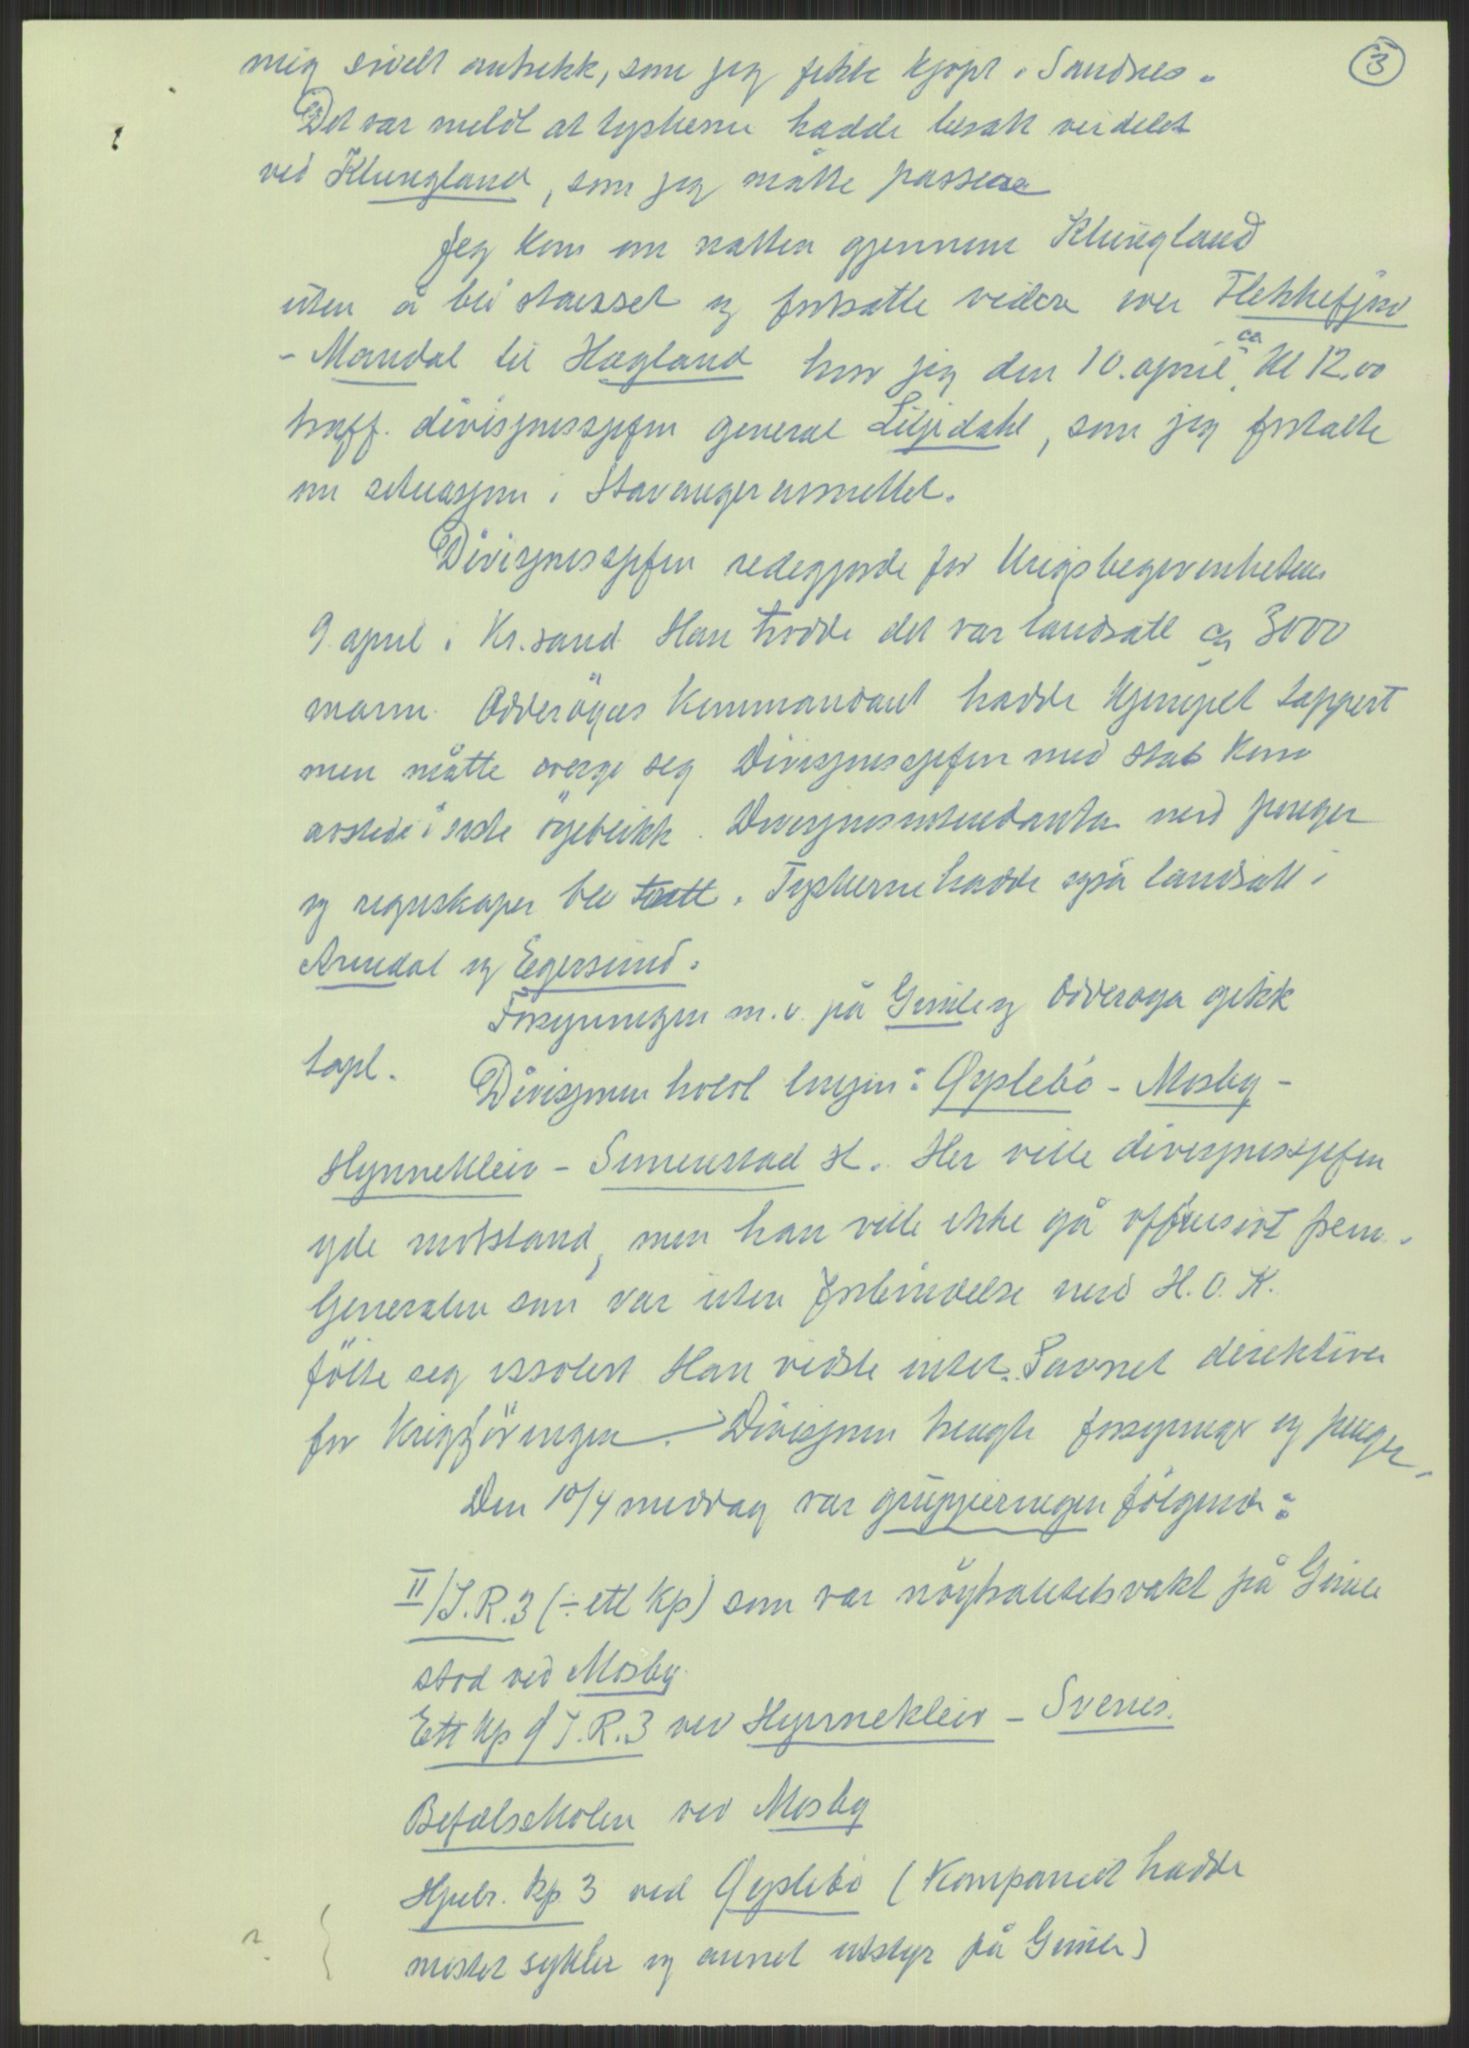 3
mig sivilt antrekk, som jeg fikk kjøpt i Sandnes.
Det var meldt at tyskerne hadde besatt veidelet
ved Klungland, som jeg måtte passere
Jeg kom om natten gjennem Klungland
uten å bli stanset og fortsatte videre over Flekkefjord
- Mandal til Hægland hvor jeg den 10. april ca Kl 12.00
traff divisjonssjefen general Liljedahl, som jeg fortalte
om situasjonen i Stavangeravsnittet.
Divisjonssjefen redegjorde for Krigsbegivenhetene
9 april i Kr.sand Han trodde det var landsatt ca 3000
mann. Odderöyas Kommandant hadde kjempet tappert
men måtte overgi seg Divisjonssjefen med stab kom
avsted i siste öyeblikk. Divisjonsintendanten med penger
og regnskaper ble tatt. Tyskerne hadde også landsatt i
Arendal og Egersund.
Forsyningen m.v. på Gimle og Odderøya gikk
tapt.
Divisjonen holdt linjen: Øyslebö - Mosby -
Hynnekleiv - Simenstad st. Her ville divisjonssjefen
yde motstand, men han ville ikke gå offensivt frem.
Generalen som var uten forbindelse med H.O.K.
fölte seg issolert Han visste intet. Savnet direktiver
for Krigföringen. Divisjonen trengte forsyninger og penger.
Den 10/4 middag var grupperingen fölgende:
II/I.R.3 (÷ ett Kp) som var nöytralitetsvakt på Gimle
stod ved Mosby
Ett Kp af I.R.3 ved Hynnekleiv - Svenes.
Befalsskolen ved Mosby
Hjulr. kp 3 ved Øyslebö (Kompaniet hadde
mistet sykler og annet utstyr på Gimle)
?